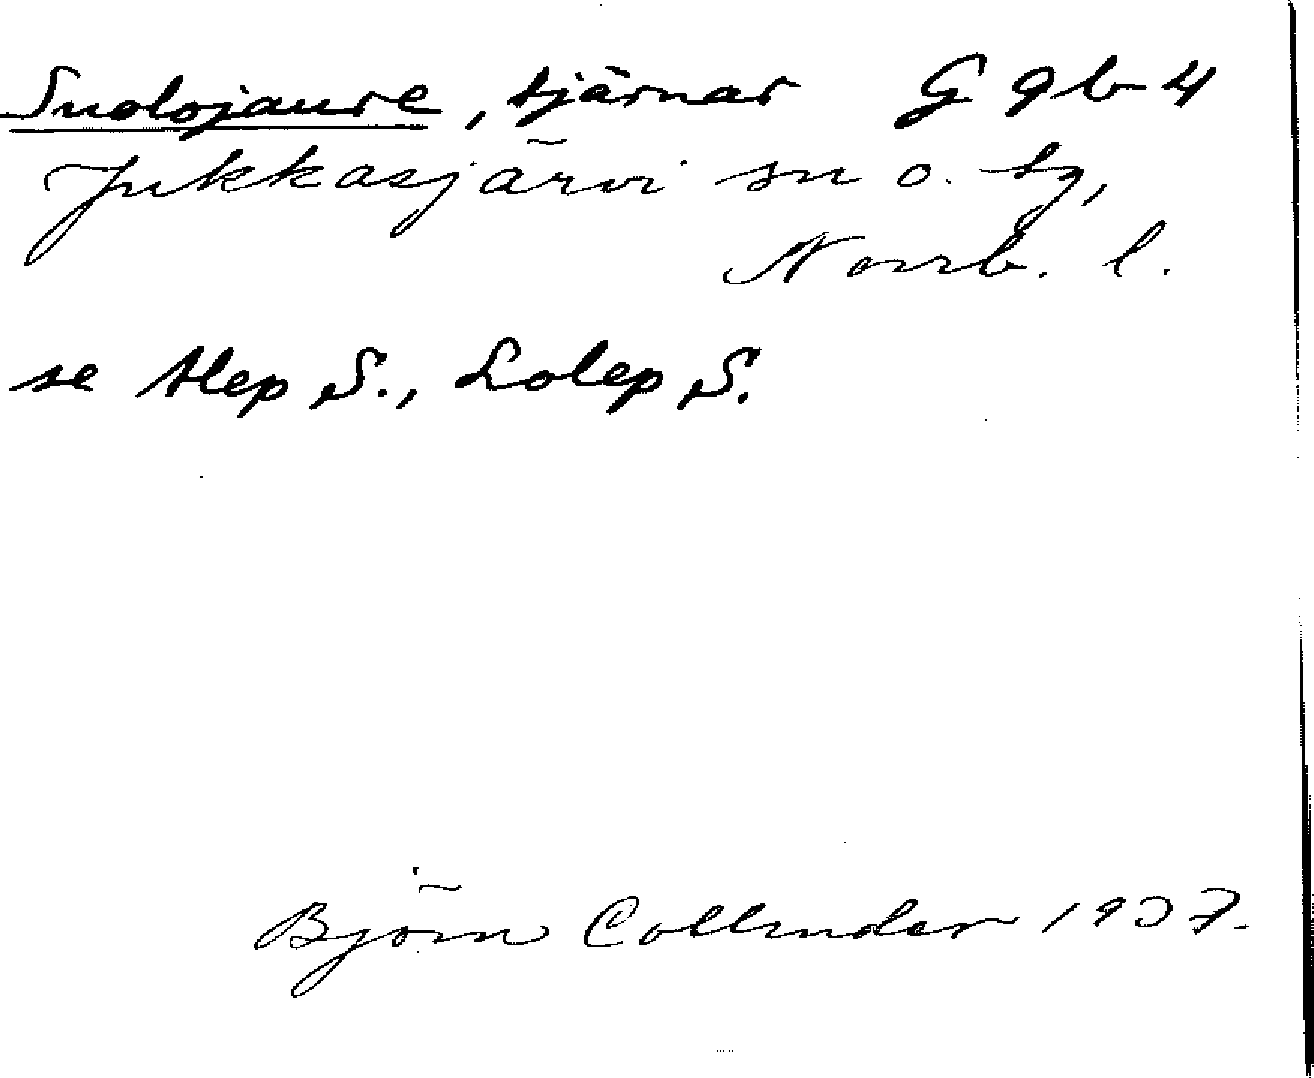 Suolojaure, tjärnar G 9 b 4
Jukkasjärvi sn o. tg,
Norrb. l.
se Alep S., Lolep S.
Björn Collinder 1937.